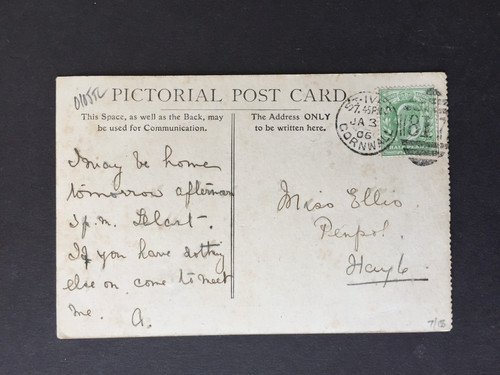 PICTORIAL POST CARD.
This Space, as well as the Back, may
be used for Communication.
The Address ONLY
to be written here.
ST. IVES
7.45PM
JA 3
06
CORNWALL
I may be home
tomorrow afternoon
If you have nothing
else on come to meet
me. A.
Miss Ellis.
Penpol.
Hayle.
7/15